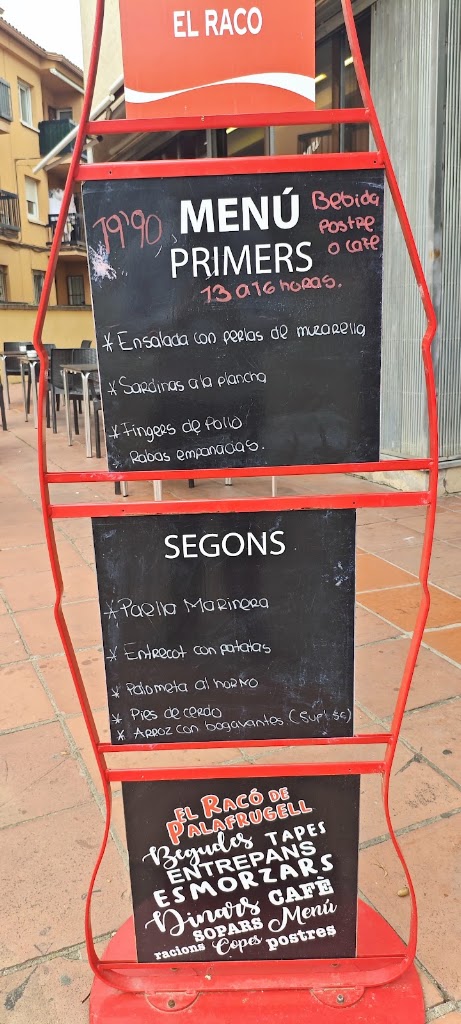 EL RACO
19'90
MENÚ
Bebida
postre
o café
PRIMERS
13 a 16 horas.
* Ensalada con perlas de muzarella
* Sardinas a la plancha
* Fingers de Pollo
Rabas empanadas.
SEGONS
* Paella Marinera
* Entrecot con patatas
* Palometa al horno
* Pies de cerdo
* Arroz con bogavantes (supl 5€)
EL RACÓ DE
PALAFRUGELL
Begudes TAPES
ENTREPANS
ESMORZARS
Dinars CAFÈ
SOPARS Menú
racions Copes postres